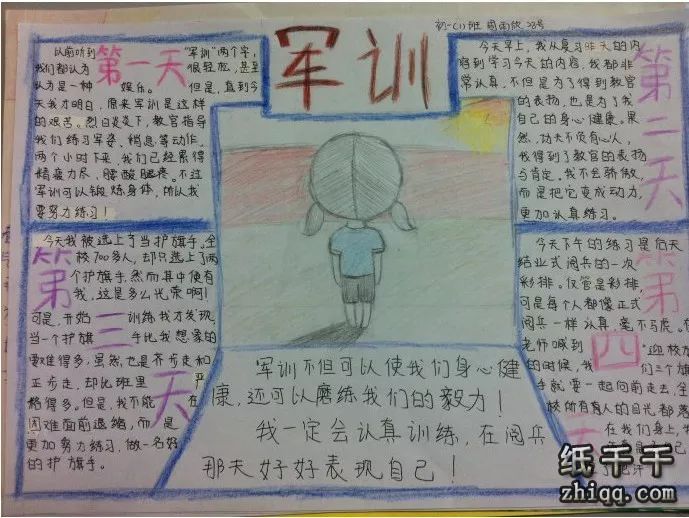 初一(1)班
28号
军训
第一天
以前听到"军训"两个字,
我们都认为很轻松,甚至
认为是一种娱乐。但是,直到今
天我才明白,原来军训是这样
的艰苦。烈日炎炎下,教官指导
我们练习军姿、稍息等动作。
两个小时下来,我们已经累得
精疲力尽、腰酸腿疼。不过
军训可以锻炼身体,所以我
要努力练习!
第二天
今天早上,我从复习昨天的内
容到学习今天的内容,我都非
常认真,不但是为了得到教官
的表扬,也是为了我
自己的身心健康。果
然,功夫不负有心人,
我得到了教官的表扬
与肯定。我不会骄傲,
而是把它变成动力,
更加认真练习。
第三天
今天我被选上了当护旗手。全
校700多人,却只选上了两
个护旗手,然而其中便有
我,这是多么光荣啊!
可是,开始训练我才发现,
当一个护旗手比我想象的
要难得多。虽然,也是齐步走和
正步走,却比班里严
格得多。但是,我不能在
困难面前退缩,而是
更加努力练习,做一名好
的护旗手。
第四天
今天下午的练习是后天
结业式阅兵的一次
彩排。仅管是彩排,
可是每个人都像正式
阅兵一样认真,毫不马虎。
老师喊到"迎校
的时候,我们三个旗
手就要一起向前走去,全
校所有人的目光都
在我们身上,
军训不但可以使我们身心健
康,还可以磨练我们的毅力!
我一定会认真训练,在阅兵
那天好好表现自己!
纸千千
zhiqq.com